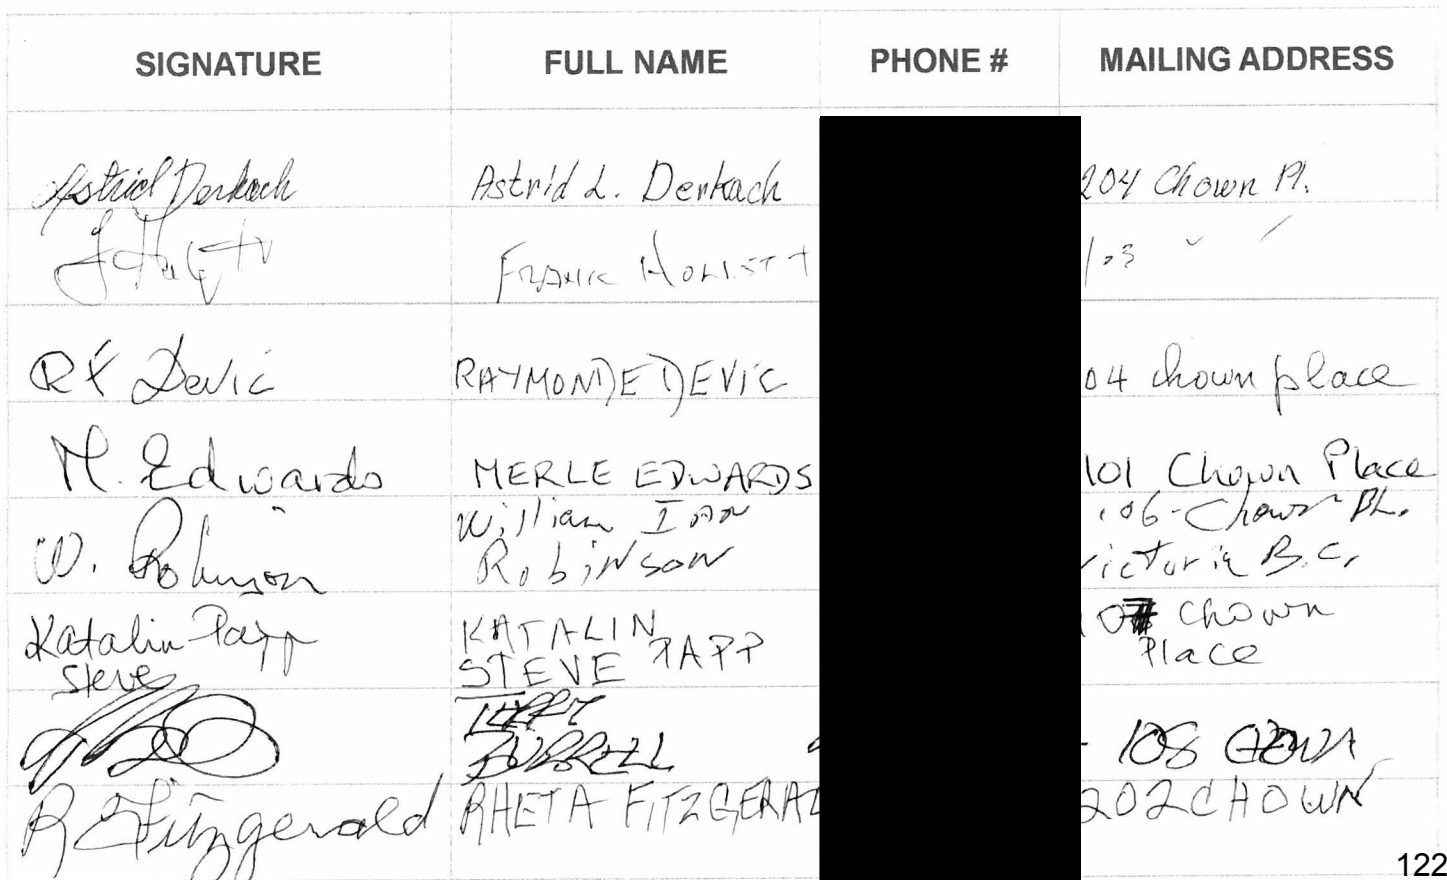 SIGNATURE FULL NAME PHONE # MAILING ADDRESS
Astrid Derkach Astrid L. Derkach 204 Chown Pl.
FRANK 103
RX Devic RAYMONDE DEVIC 04 chown place
M. Edwards MERLE EDWARDS 101 Chown Place
W. Robinson William Ian Robinson 106-Chown PL.
ictoria B.C.
Katalin Papp KATALIN PAPP Chown
Steve STEVE Place
TERRY
BURRELL 108 CHOWN
R Fitzgerald RHETA FITZGERAL 202 CHOWN
122